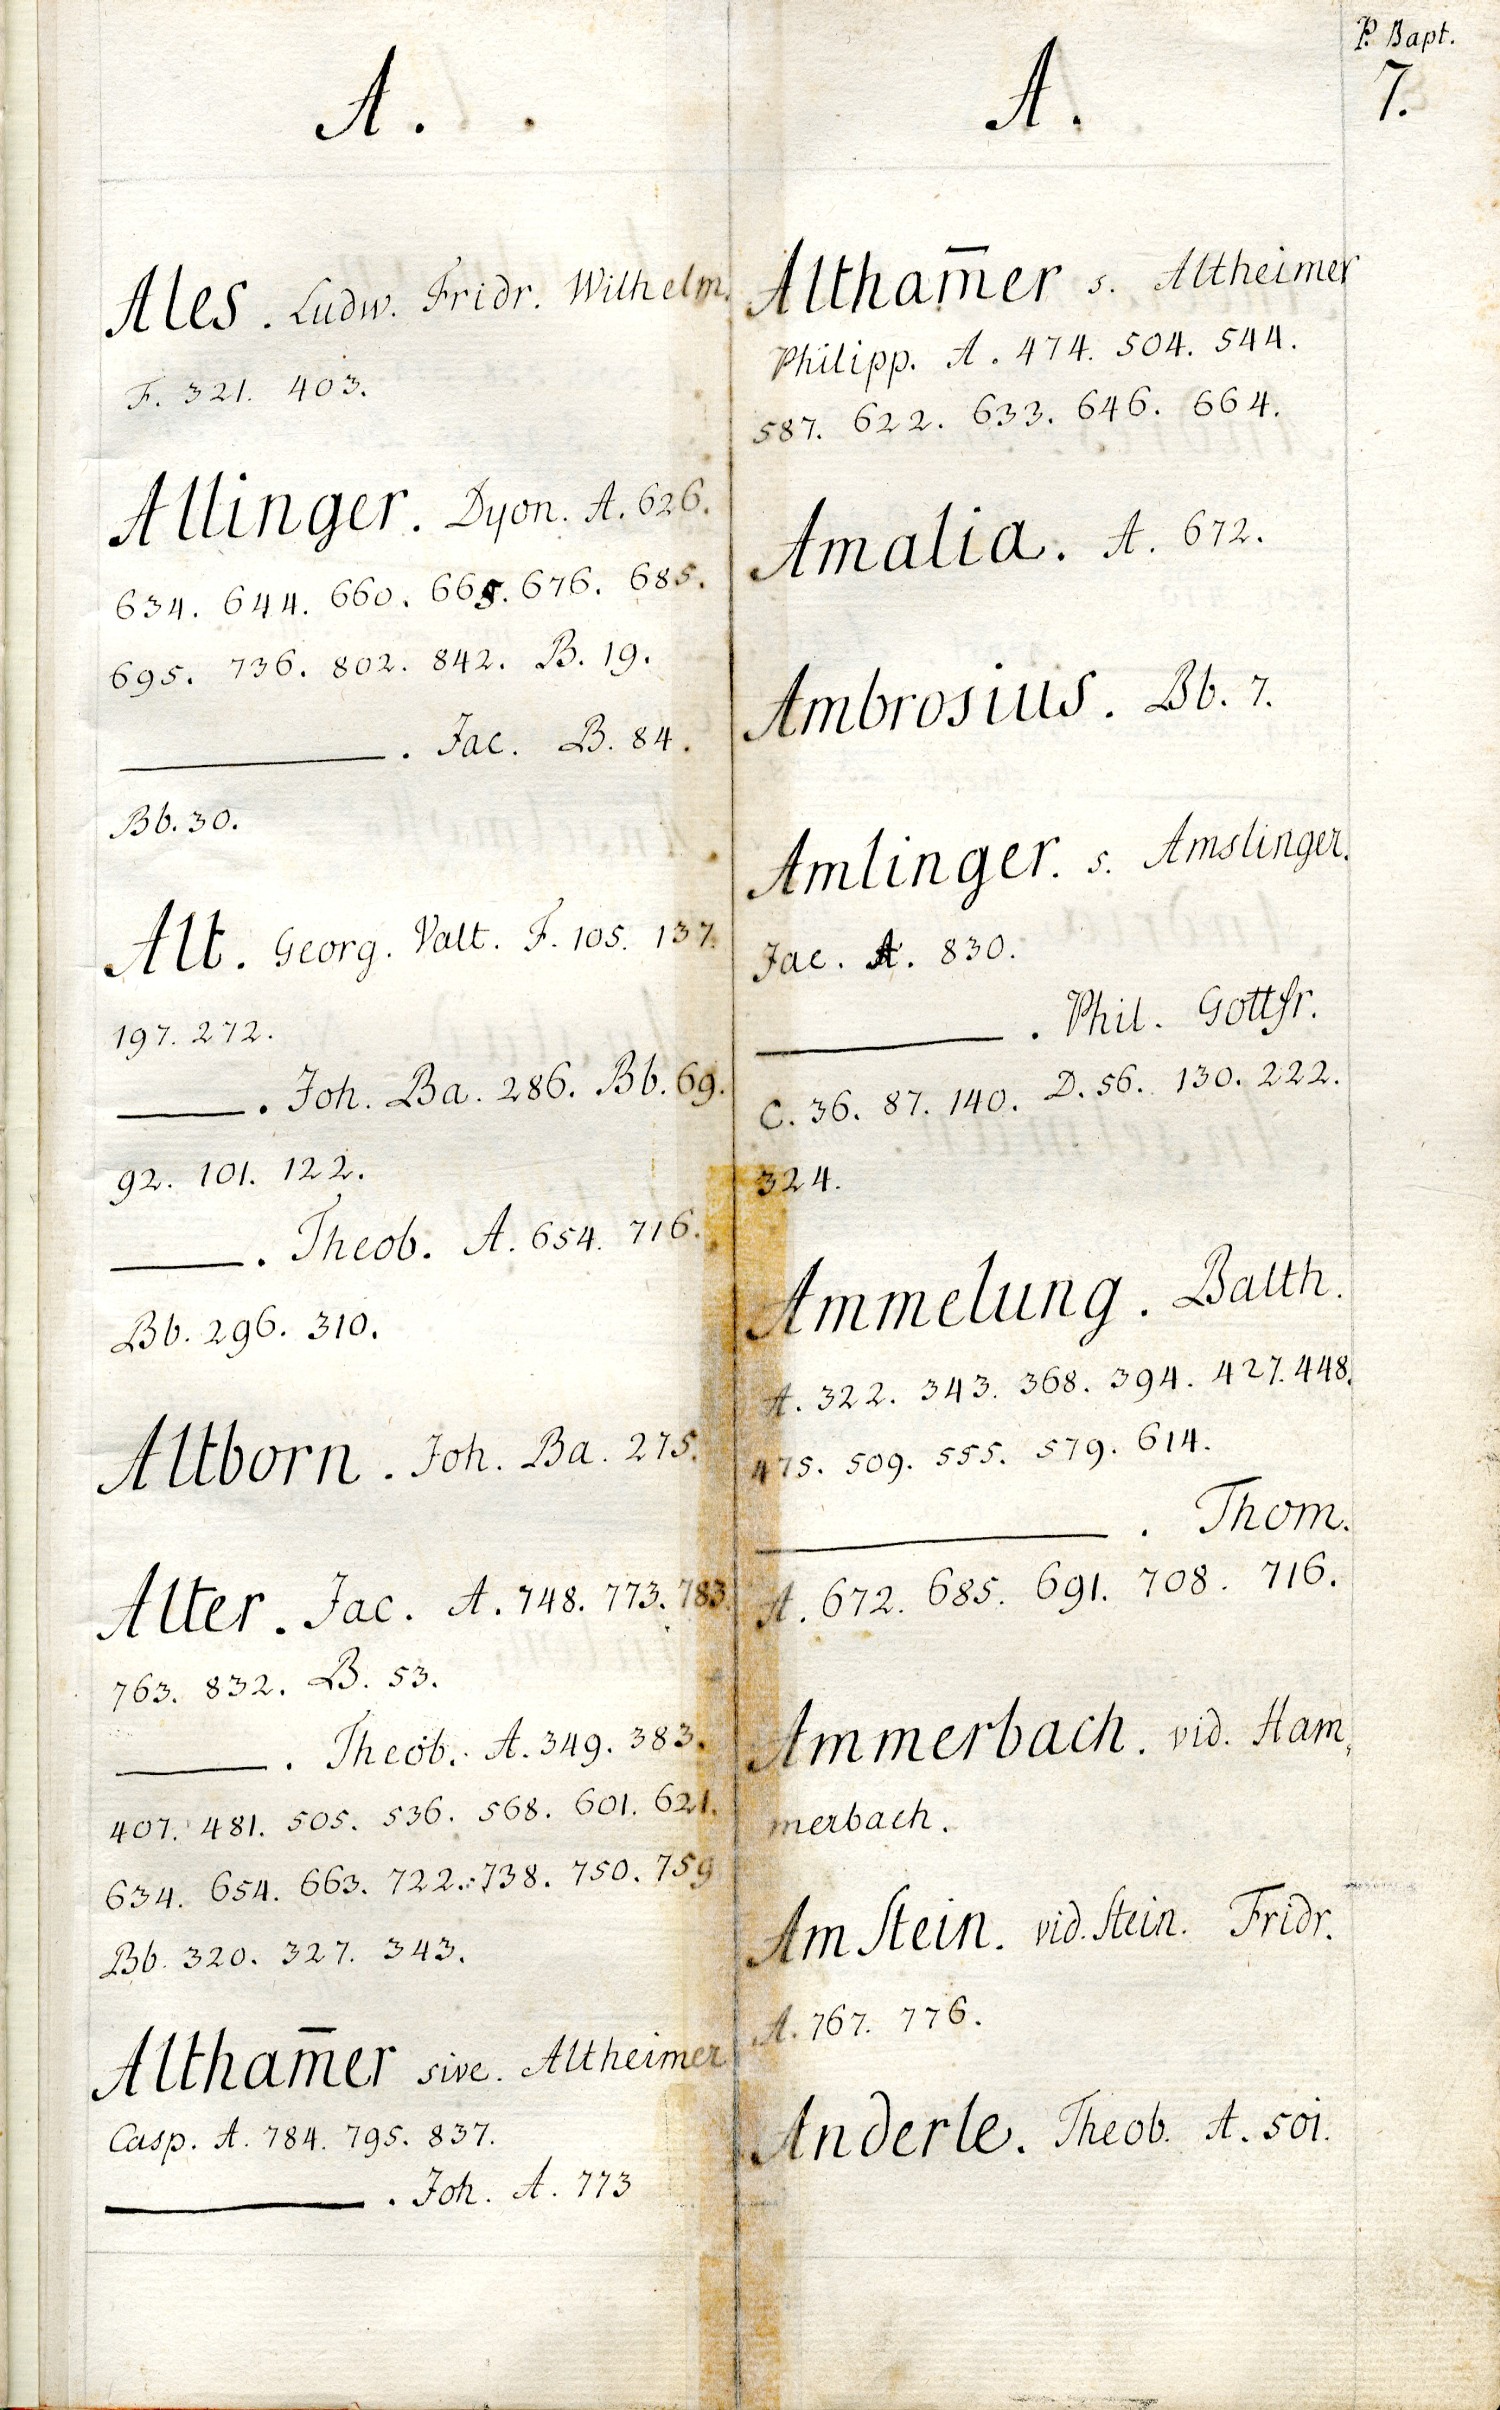 P. Bapt.
7.
A.
Ales. Ludw. Fridr. Wilhelm.
F. 321. 403.
Allinger. Dyon. A. 626.
634. 644. 660. 665. 676. 685.
695. 736. 802. 842. B. 19.
———. Jac. B. 84.
Bb. 30.
Alt. Georg. Valt. F. 105. 137.
197. 272.
———. Joh. Ba. 286. Bb. 69.
92. 101. 122.
———. Theob. A. 654. 716.
Bb. 296. 310.
Altborn. Joh. Ba. 275.
Alter. Jac. A. 748. 773. 783.
763. 832. B. 53.
———. Theob. A. 349. 383.
407. 481. 505. 536. 568. 601. 621.
634. 654. 663. 722. 738. 750. 759
Bb. 320. 327. 343.
Altham̄er sive. Altheimer
Casp. A. 784. 795. 837.
———. Joh. A. 773
A.
Altham̄er s. Altheimer
Philipp. A. 474. 504. 544.
587. 622. 633. 646. 664.
Amalia. A. 672.
Ambrosius. Bb. 7.
Amlinger. s. Amslinger.
Jac. A. 830.
———. Phil. Gottfr.
C. 36. 87. 140. D. 56. 130. 222.
324.
Ammelung. Balth.
A. 322. 343. 368. 394. 427. 448.
475. 509. 555. 579. 614.
———. Thom.
A. 672. 685. 691. 708. 716.
Ammerbach. vid. Ham,
merbach.
Am Stein. vid. Stein. Fridr.
A. 767. 776.
Anderle. Theob. A. 501.